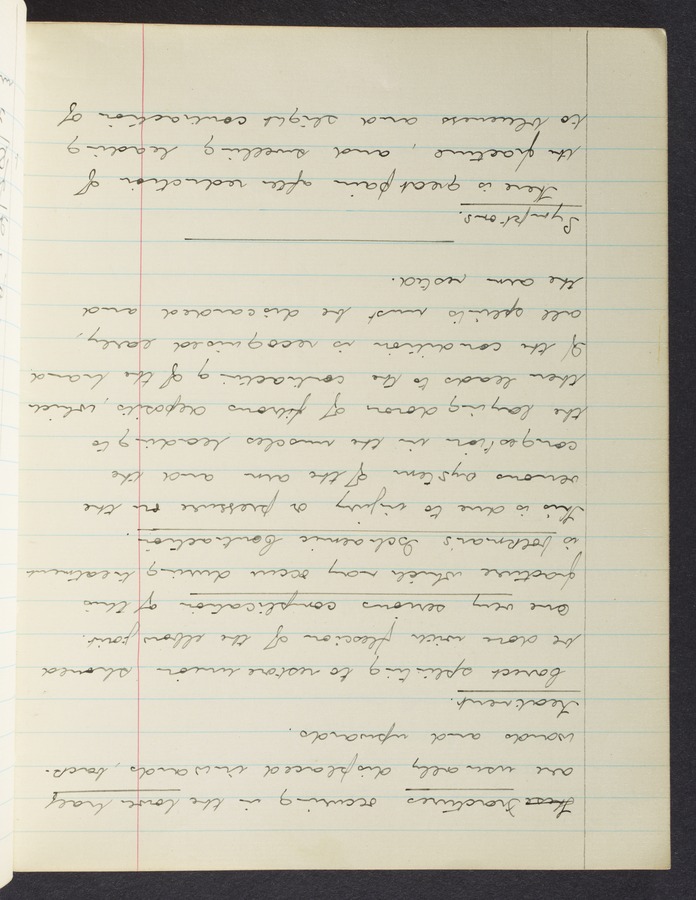 ~~These~~ Fractures occuring in the lower half
are usually displaced inwards, back-
wards and upwards.
Treatment.
Correct splinting to restore union should
be done with flexion of the elbow joint.
One very serious complication of this
fracture which may occur during treatment
is Volkman's Ischaemic Contraction.
This is due to injury or pressure on the
venous system of the arm and the
congestion in the muscles leading to
the laying down of fibrous deposits, which
then leads to the contracting of the hand
If the condition is recognised early,
all splints must be discarded and
the arm rested.
Symptoms.
There is great pain after reduction of
the fracture, and swelling leading
to blueness and slight contraction of